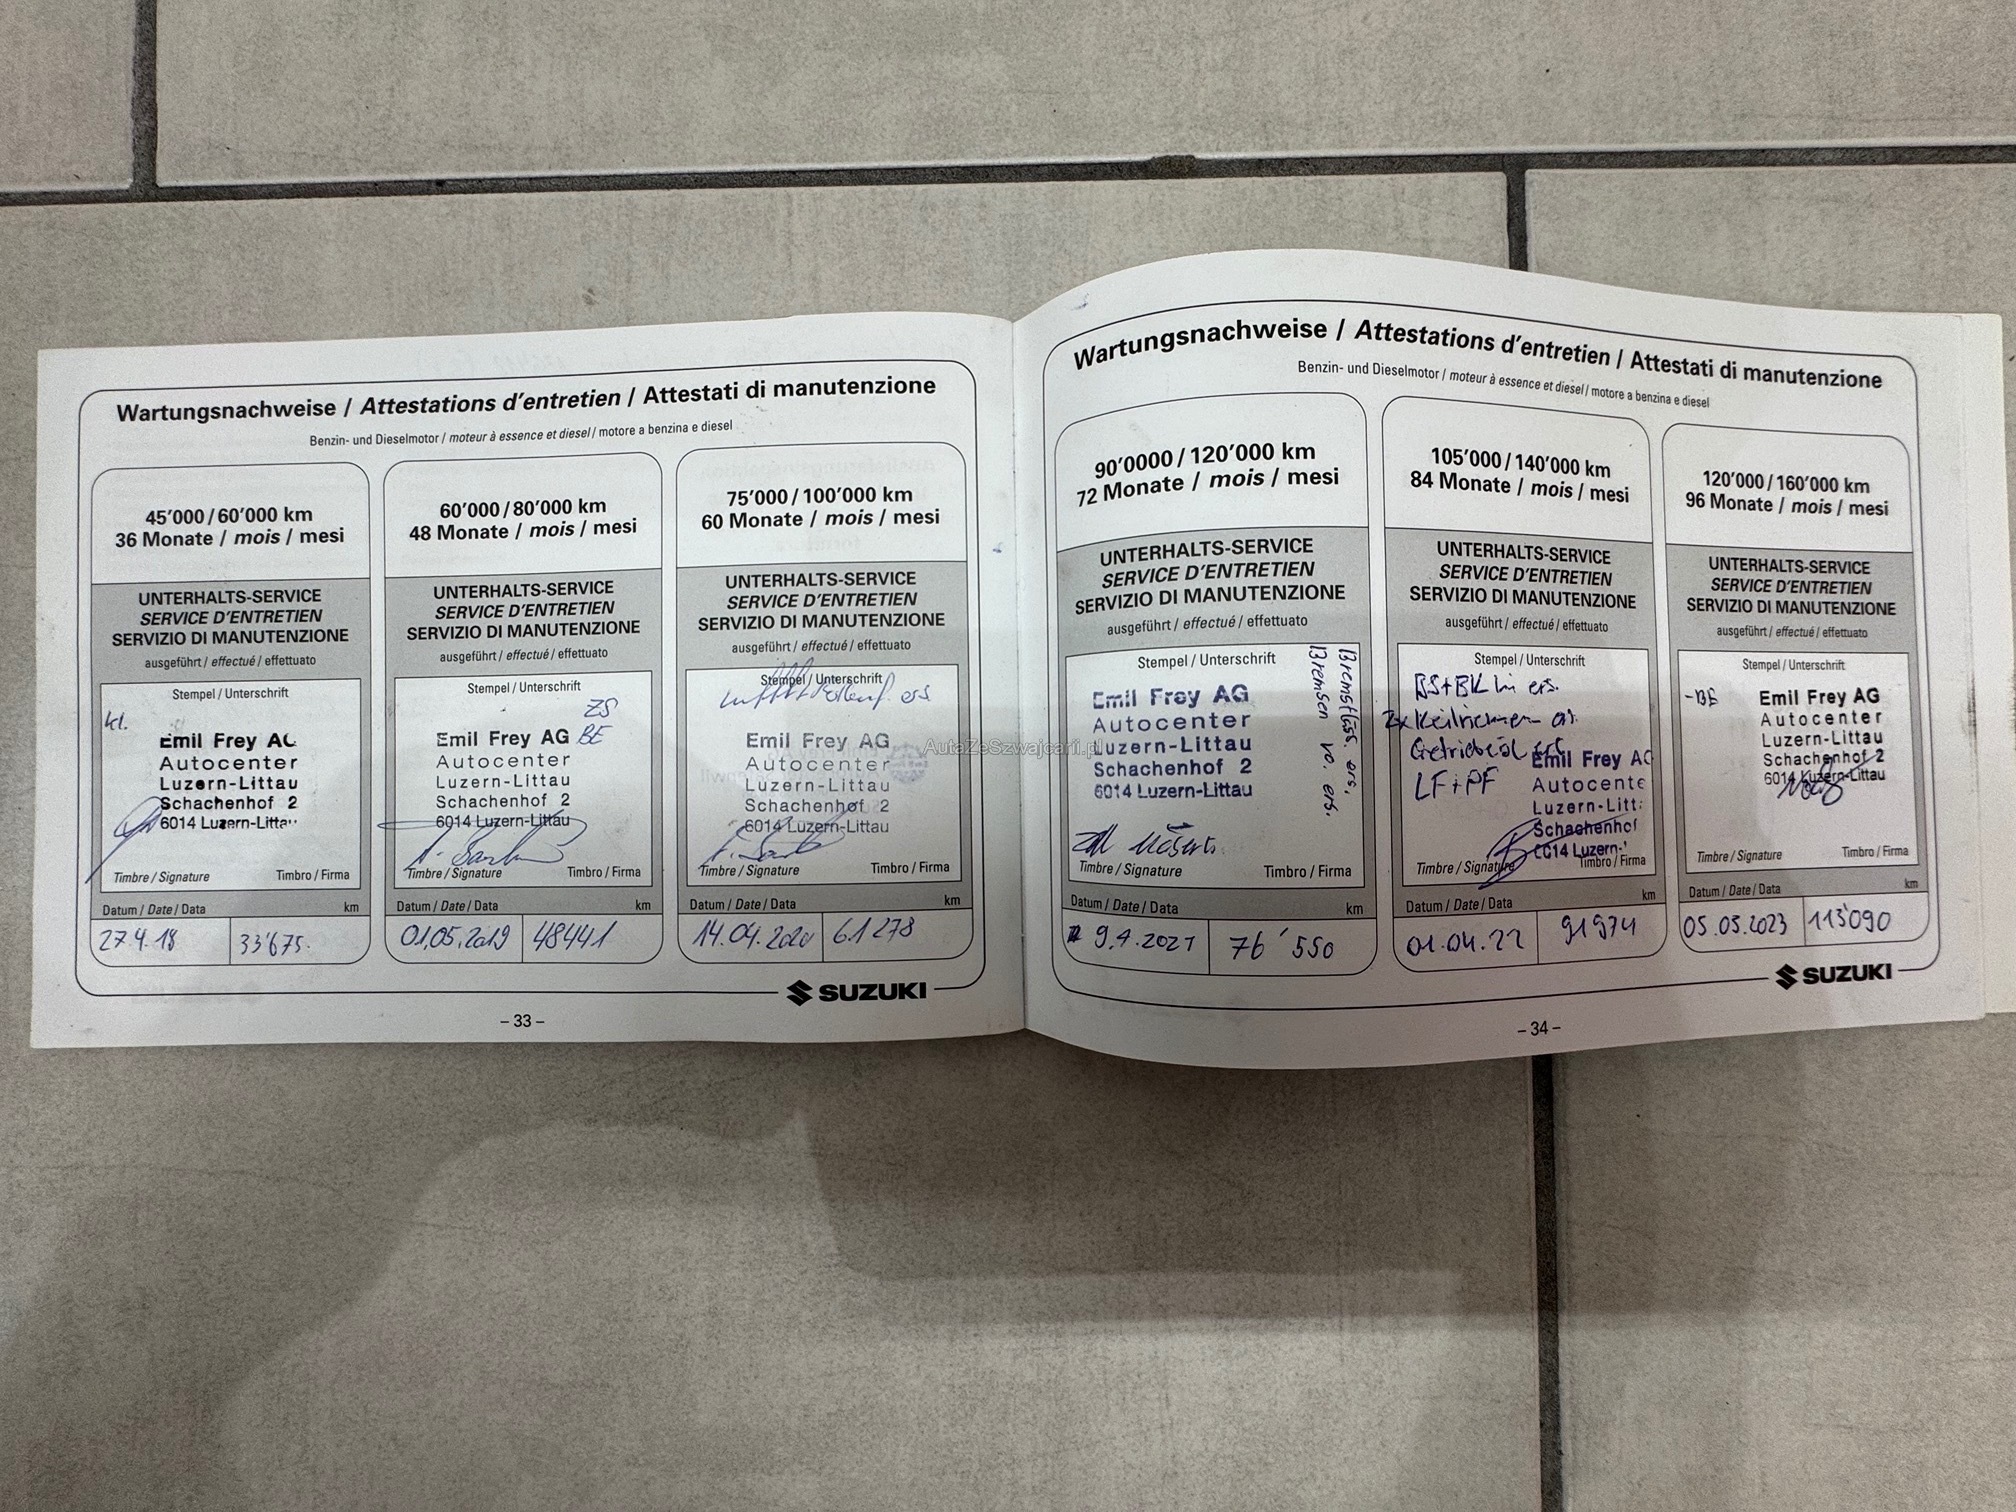 Wartungsnachweise / Attestations d'entretien / Attestati di manutenzione
Benzin- und Dieselmotor / moteur à essence et diesel / motore a benzina e diesel
45'000 / 60'000 km
36 Monate / mois / mesi
UNTERHALTS-SERVICE
SERVICE D'ENTRETIEN
SERVIZIO DI MANUTENZIONE
ausgeführt / effectué / effettuato
Stempel / Unterschrift
kl.
Emil Frey AG
Autocenter
Luzern-Littau
Schachenhof 2
6014 Luzern-Littau
Timbre / Signature Timbro / Firma
Datum / Date / Data km
27.4.18 33'675.
60'000 / 80'000 km
48 Monate / mois / mesi
UNTERHALTS-SERVICE
SERVICE D'ENTRETIEN
SERVIZIO DI MANUTENZIONE
ausgeführt / effectué / effettuato
Stempel / Unterschrift
ZS
Emil Frey AG BE
Autocenter
Luzern-Littau
Schachenhof 2
6014 Luzern-Littau
Timbre / Signature Timbro / Firma
Datum / Date / Data km
01.05.2019 48441
75'000 / 100'000 km
60 Monate / mois / mesi
UNTERHALTS-SERVICE
SERVICE D'ENTRETIEN
SERVIZIO DI MANUTENZIONE
ausgeführt / effectué / effettuato
Stempel / Unterschrift
ers
Emil Frey AG
Autocenter
Luzern-Littau
Schachenhof 2
6014 Luzern-Littau
Timbre / Signature Timbro / Firma
Datum / Date / Data km
14.04.2020 61278
SUZUKI
– 33 –
Wartungsnachweise / Attestations d'entretien / Attestati di manutenzione
Benzin- und Dieselmotor / moteur à essence et diesel / motore a benzina e diesel
90'0000 / 120'000 km
72 Monate / mois / mesi
UNTERHALTS-SERVICE
SERVICE D'ENTRETIEN
SERVIZIO DI MANUTENZIONE
ausgeführt / effectué / effettuato
Stempel / Unterschrift
Bremsflüss. ers.
Bremsen vo. ers.
Emil Frey AG
Autocenter
Luzern-Littau
Schachenhof 2
6014 Luzern-Littau
Timbre / Signature Timbro / Firma
Datum / Date / Data km
9.4.2021 76'550
105'000 / 140'000 km
84 Monate / mois / mesi
UNTERHALTS-SERVICE
SERVICE D'ENTRETIEN
SERVIZIO DI MANUTENZIONE
ausgeführt / effectué / effettuato
Stempel / Unterschrift
BS+BK hi ers.
2x Keilriemen ers.
Getriebeöl ers.
LF+PF
Emil Frey AG
Autocente
Luzern-Litt
Schachenhof
6014 Luzern-
Timbre / Signature Timbro / Firma
Datum / Date / Data km
01.04.22 91974
120'000 / 160'000 km
96 Monate / mois / mesi
UNTERHALTS-SERVICE
SERVICE D'ENTRETIEN
SERVIZIO DI MANUTENZIONE
ausgeführt / effectué / effettuato
Stempel / Unterschrift
-BE
Emil Frey AG
Autocenter
Luzern-Littau
Schachenhof 2
6014 Luzern-Littau
Timbre / Signature Timbro / Firma
Datum / Date / Data km
05.05.2023 113'090
SUZUKI
– 34 –
AutaZeSzwajcarii.pl